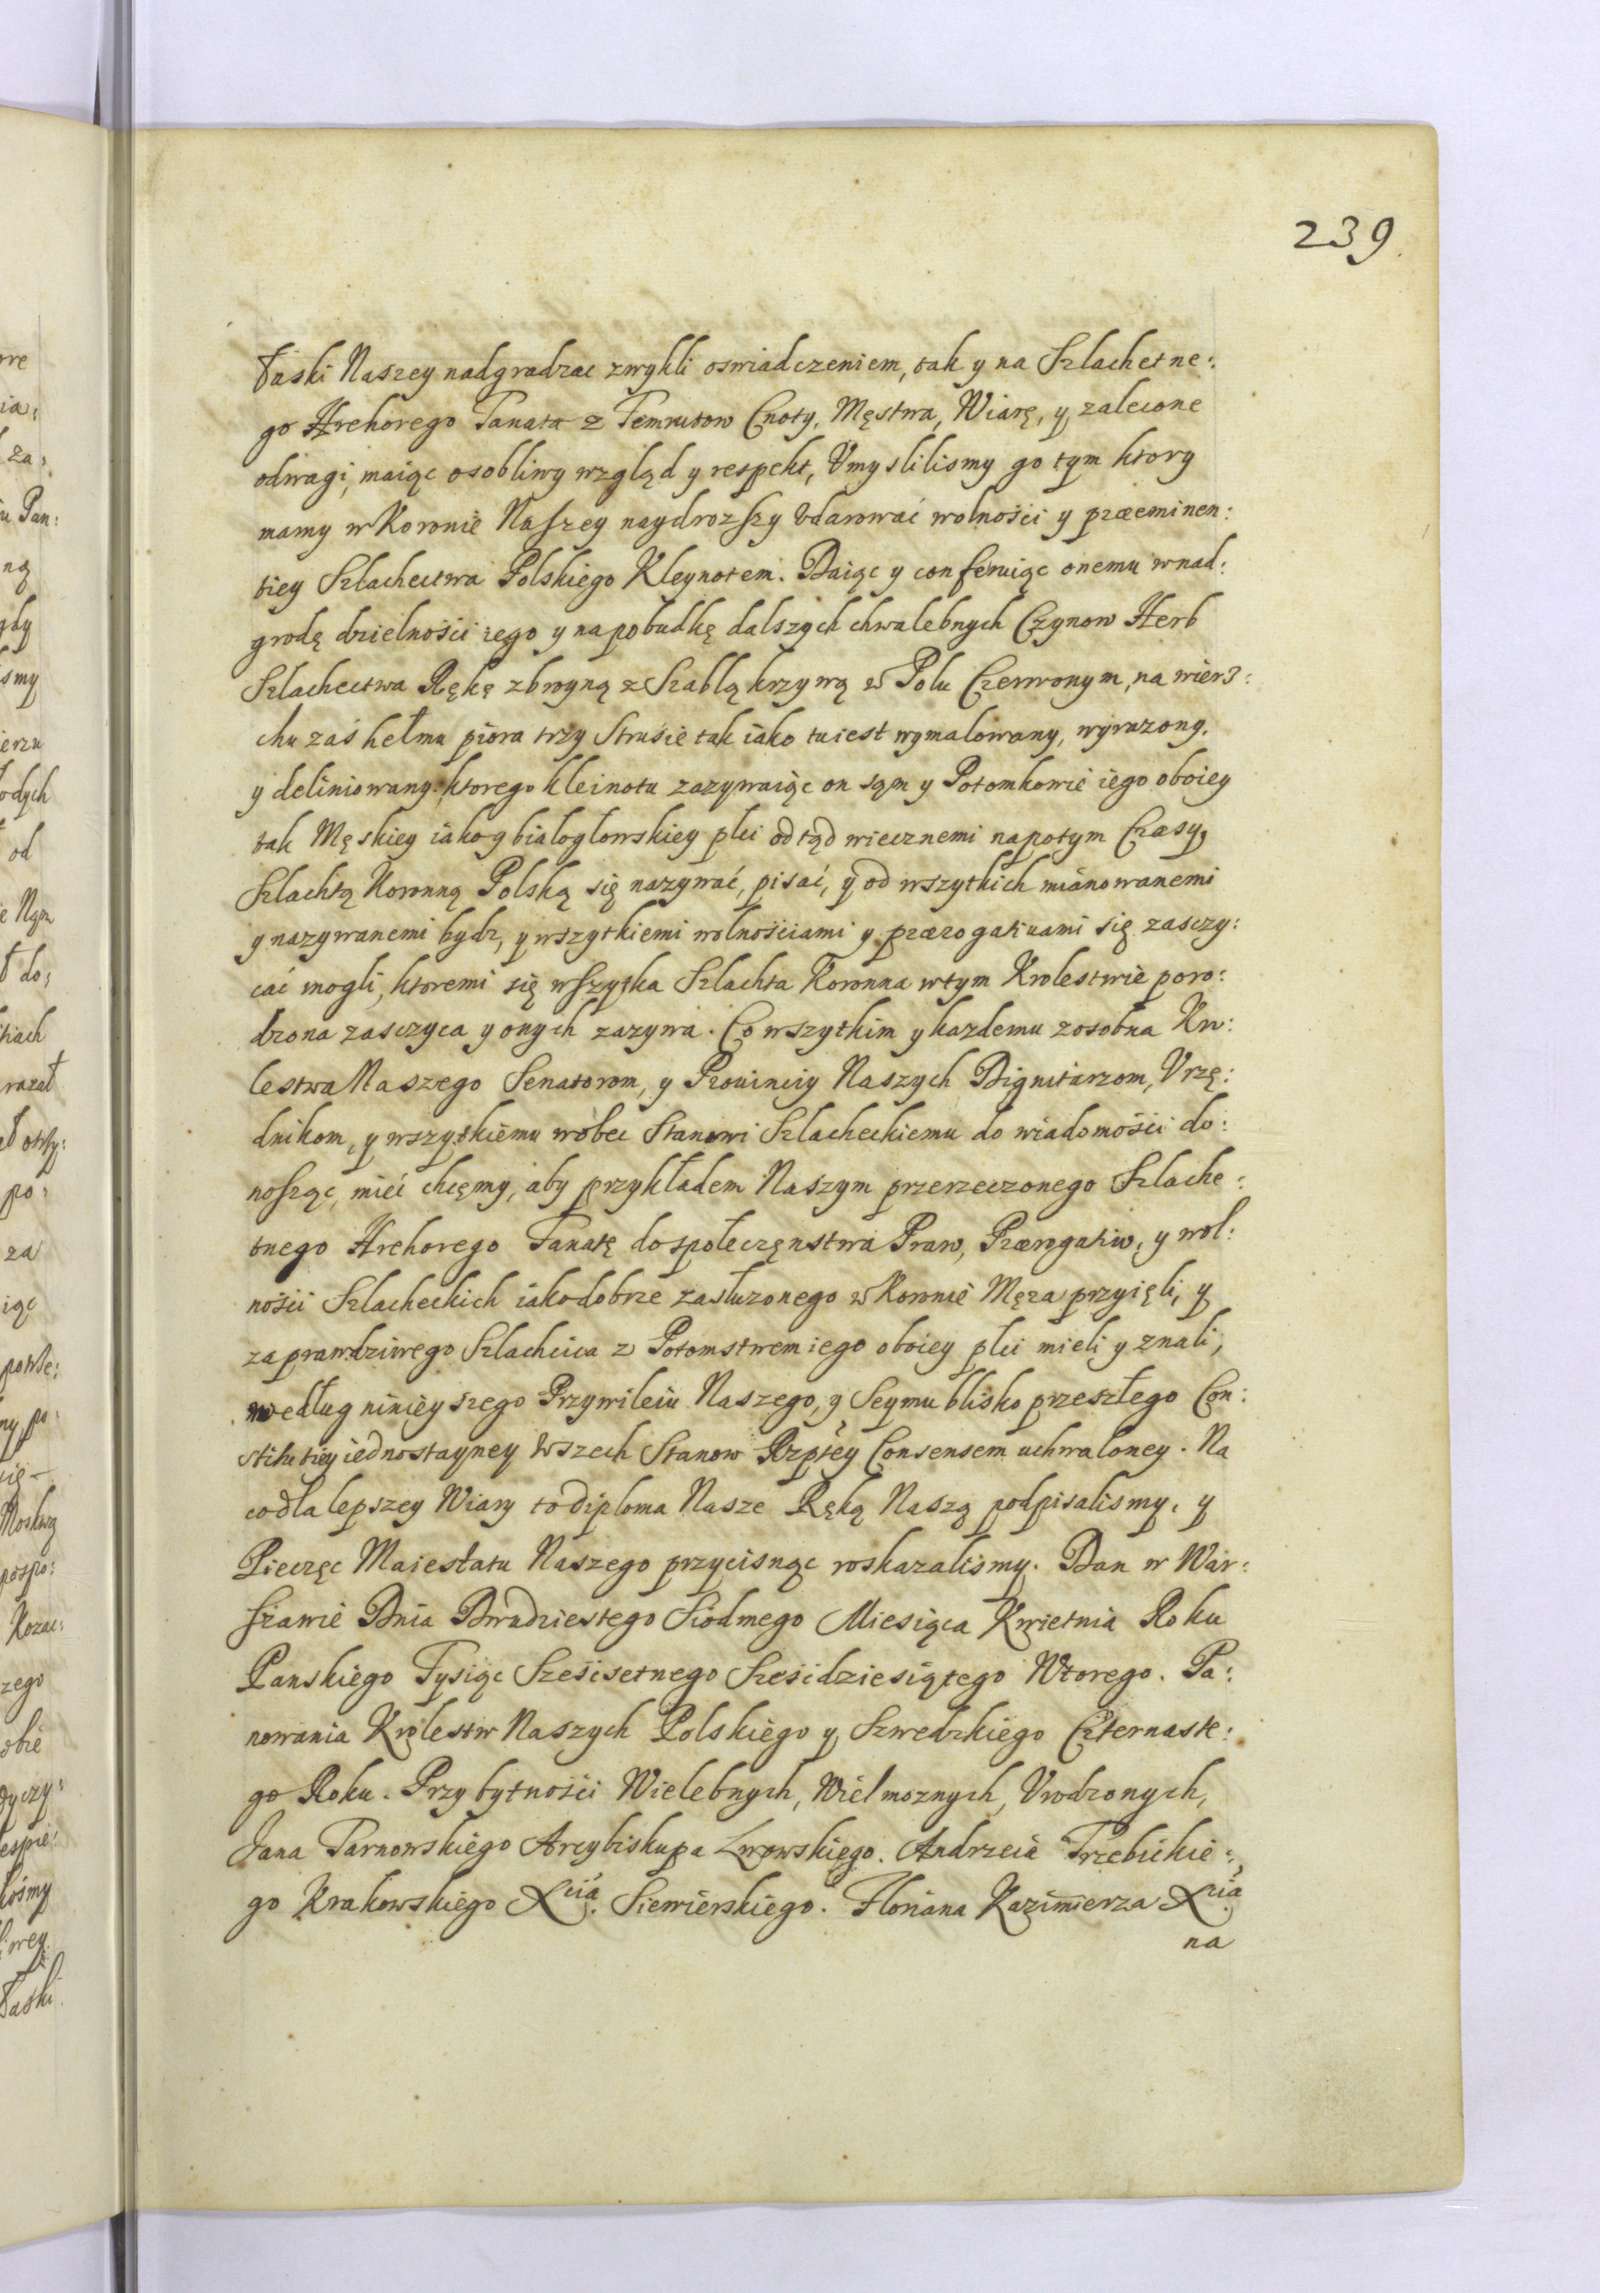 239.
łaski Naszey nadgradzac zwykli oswiadczeniem, tak y na Szlachetne:
go Hrehorego Tanata z Temrutow Cnoty, Męstwa, Wiarę, y zalecone
odwagi, maiąc osobliwy wzgląd y respekt, Vmyslilismy go tym ktory
mamy w Koronie Naszey naydrozszy vdarować wolności y præeminen:
tiey Szlachectwa Polskiego Kleynotem. Daiąc y conferuiąc onemu wnad:
grodę dzielności iego y napobudkę dalszych chwalebnych Czynow Herb
Szlachectwa Rękę zbroyną z Szablą krzywą w Polu Czerwonym, na wierz:
chu zaś hełmu piora trzy Strusie tak iako tuiest wymalowany, wyrazony,
y deliniowany: ktorego kleinotu zazywaiąc on sąm y Potomkowie iego oboiey
tak Męskiey iako y białogłowskiey płci odtąd wiecznemi napotym Czasy,
Szlachtą Koronną Polską się nazywać, pisać, y od wszytkich mianowanemi
y nazywanemi bydz, y wszytkiemi wolnościami y prærogatiuami się zasczy:
cać mogli, ktoremi się wszytka Szlachta Koronna wtym Krolestwie poro:
dzona zasczyca y onych zazywa. Co wszytkim y kazdemu zosobna Kro:
lestwa Naszego Senatorom, y Prouinciy Naszych Dignitarzom, Vrzę:
dnikom, y wszytkiemu wobec Stanowi Szlacheckiemu do wiadomości do:
nosząc, mieć chcęmy, aby przykładem Naszym przerzeczonego Szlache:
tnego Hrehorego Tanatę do społeczęnstwa Praw, Prærogatiw, y wol:
ności Szlacheckich iako dobrze zasłuzonego w Koronie Męza przyięli, y
za prawdziwego Szlachcica z Potomstwem iego oboiey płci mieli y znali,
według ninieyszego Przywileiu Naszego, y Seymu blisko przeszłego Con:
stitutiey iednostayney wszech Stanow Rzptey Consensem uchwaloney. Na
co dla lepszey Wiary to diploma Nasze Ręką Naszą podpisalismy, y
Pieczęc Maiestatu Naszego przycisnąc roskazalismy. Dan w War:
szawie Dnia Dwudziestego Siodmego Miesiąca Kwietnia Roku
Panskiego Tysiąc Sześćsetnego Sześćdziesiątego Wtorego. Pa:
nowania Krolestw Naszych Polskiego y Szwedzkiego Czternaste:
go Roku. Przy bytności Wielebnych, Wielmoznych, Vrodzonych,
Jana Tarnowskiego Arcybiskupa Lwowskiego. Andrzeia Trzebickie:
go Krakowskiego Xcia. Siewierskiego. Floriana Kazimierza Xcia
na